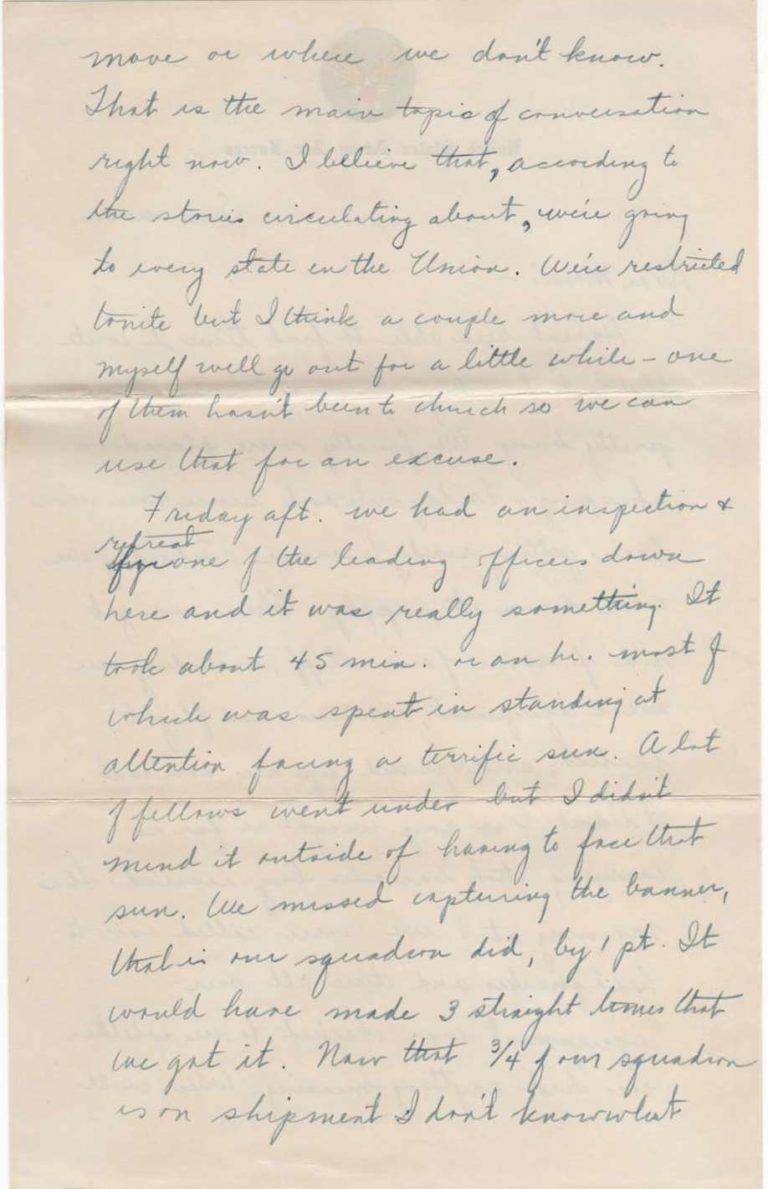 move or where we don't know.
That is the main topic of conversation
right now. I believe that, according to
the stories circulating about, we're going
to every state in the Union. We're restricted
tonite but I think a couple more and
myself will go out for a little while – one
of them hasn't been to church so we can
use that for an excuse.
Friday aft. we had an inspection &
retreat
for one of the leading officers down
here and it was really something. It
took about 45 min. or an hr. most of
which was spent in standing at
attention facing a terrific sun. A lot
of fellows went under but I didn't
mind it outside of having to face that
sun. We missed capturing the banner,
that is our squadron did, by 1 pt. It
would have made 3 straight times that
we got it. Now that 3/4 of our squadron
is on shipment I don't know what